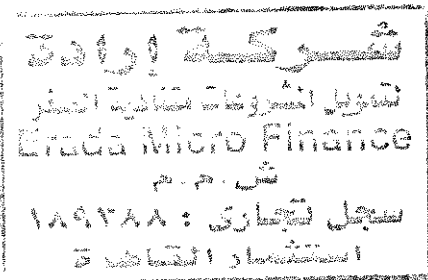 شركة إرادة
لتمويل المشروعات متناهية الصغر
Erada Micro Finance
ش.م.م
سجل تجارى : ١٨٩٢٨٨
استثمار القاهرة